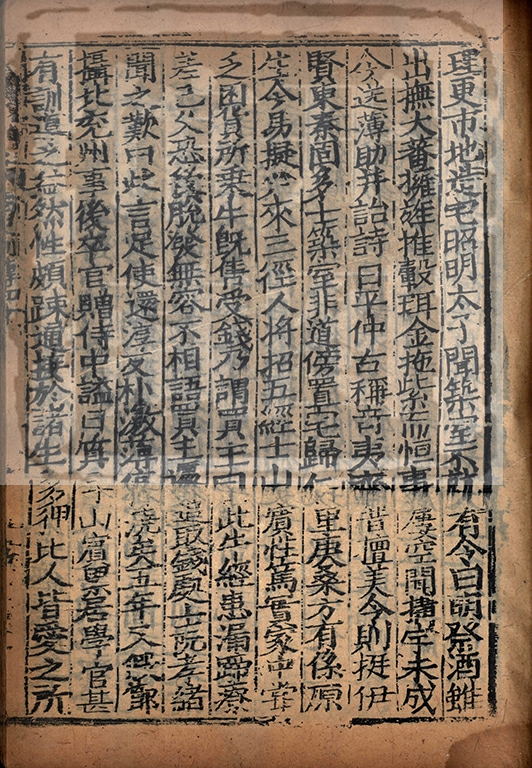 理更市地造宅昭明太子聞築室不就有令曰明祭酒雖
出撫大蕃擁旄推轂珥金拖紫而恒事屢空聞搆宇未成
今送薄助并詒詩曰平仲古稱奇夷齊昔擅美令則挺伊
賢東秦固多士築室非道傍置宅歸仁里庚桑方有係原
生今易擬必來三徑人將招五經士山賓性篤實家中嘗
乏困貨所乗牛旣售受錢乃謂買主曰此牛經患漏蹄療
差已久恐後脫發無容不相語買主遽追取錢處士阮孝緒
聞之歎曰此言足使還淳反朴激薄停澆矣五年又假節
攝北兗州事後卒官贈侍中謚曰質子山賓累居學官甚
有訓道之益然性頗疎通接於諸生多狎比人皆愛之所